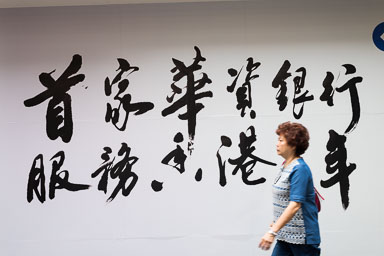 首家華資銀行
服務香港年